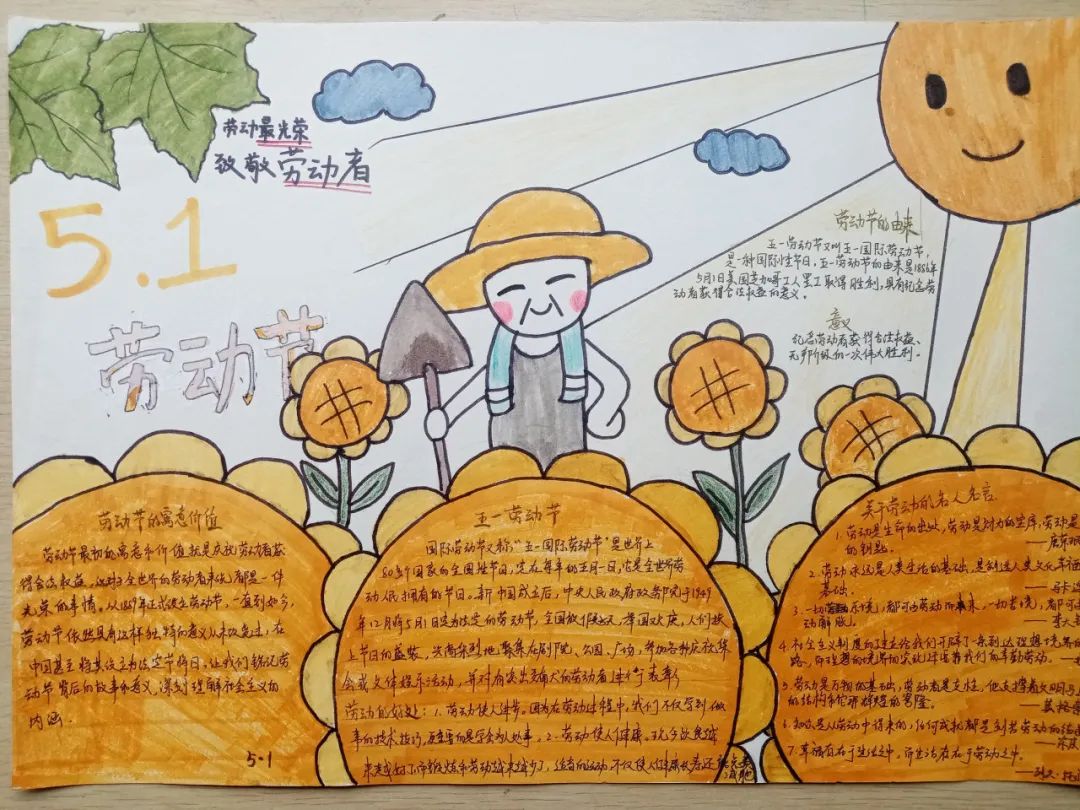 劳动最光荣
致敬劳动者
5.1
劳动节
劳动节的由来
五一劳动节又叫五一国际劳动节,
是一种国际性节日,五一劳动节的由来是1886年
5月1日美国芝加哥工人罢工取得胜利,具有纪念劳
动者获得合法权益的意义。
意义
纪念劳动者获得合法权益、
无产阶级的一次伟大胜利。
劳动节的寓意价值
劳动节最初的寓意和价值就是庆祝劳动者获
得合法权益,这对于全世界的劳动者来说都是一件
光荣的事情。从1889年正式设立劳动节,一直到如今,
劳动节依然具有这样独特的意义从未改变过,在
中国甚至将其设立为法定节假日,让我们铭记劳
动节背后的故事和意义,深刻理解社会主义的
内涵.
5·1
五一劳动节
国际劳动节又称“五一国际劳动节”是世界上
80多个国家的全国性节日,定在每年的五月一日,它是全世界劳
动人民拥有的节日。新中国成立后,中央人民政府政务院于1949
年12月将5月1日定为法定的劳动节,全国放假一天,举国欢庆,人们换
上节日的盛装,兴高采烈地聚集在剧院,公园,广场,参加各种庆祝集
会或文体娱乐活动,并对有突出贡献的劳动者进行表彰
劳动的好处:1.劳动使人进步。因为在劳动过程中,我们不仅学到做
事的技术技巧,更重要的是学会为人处事。2.劳动使人健康。现
关于劳动的名人名言
1.劳动是生命的出处,劳动是财力的宝库,劳动是
的钥匙。
2.劳动永远是人类生活的基础,是创造人类文化幸福
基础.
3.一切乐境,都可由劳动得来,一切苦境,都可
动解脱。
4.社会主义制度的建立给我们开辟了一条到达理想境界的
路,而理想的境界的实现还要靠我们的辛勤劳动。
5.劳动是万物的基础,劳动者是支柱,他支撑着文明与
的结构和它那辉煌的穹隆。
6.知识是从劳动中得来的,任何成就都是刻苦劳动的结
7.幸福存在于生活之中,而生活存在于劳动之中.